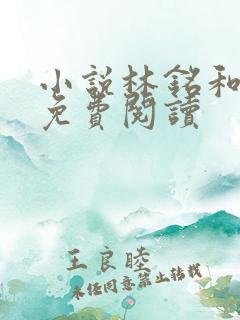 小説林銘和
免費閱讀
王良睦
未经同意禁止转载